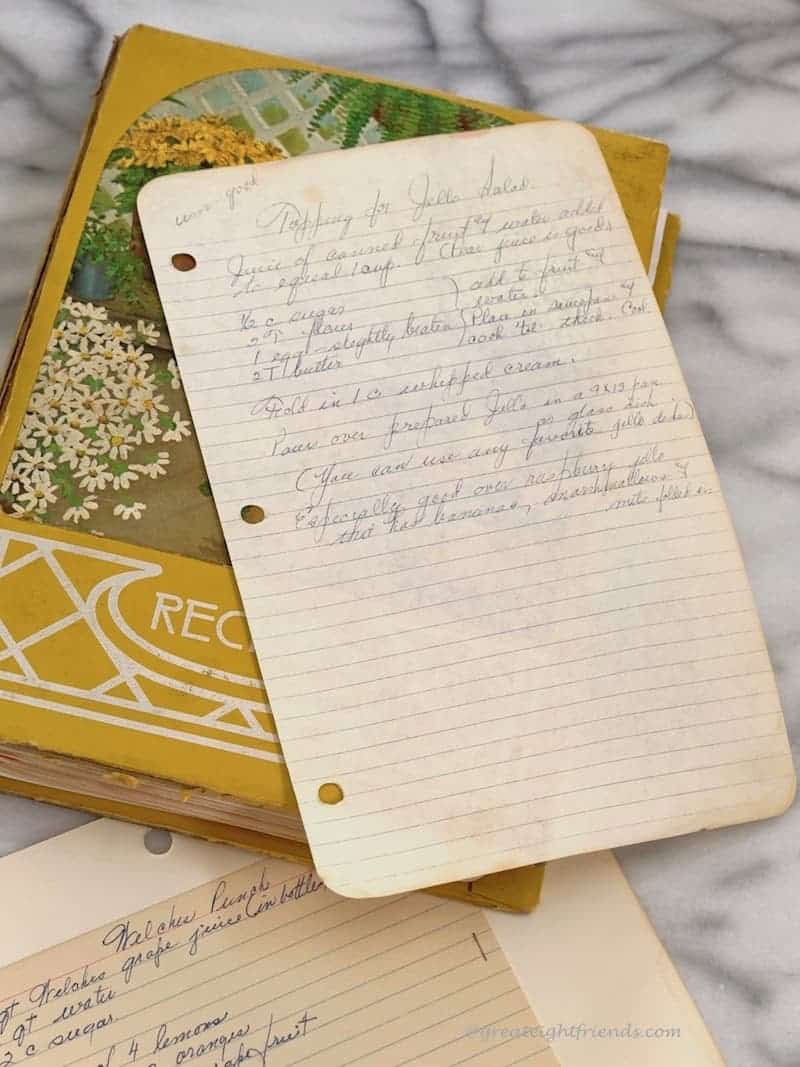 very good
Topping for Jello Salad.
Juice of canned fruit & water added
to equal 1 cup. (Clear juice is good)
½ c sugar
2 T flour
1 egg - slightly beaten
2 T butter
add to fruit &
water.
Place in saucepan &
cook 'til thick. Cool.
Fold in 1 c whipped cream.
Pour over prepared Jello in a 9x13 pan
or glass dish.
(You can use any favorite jello dish)
Especially good over raspberry jello
that has bananas, marshmallows &
nuts folded in
RECI
Welches Punch
qt Welches grape juice (in bottle
qt water
2 c sugar
of 4 lemons
oranges
grape fruit
©greateightfriends.com